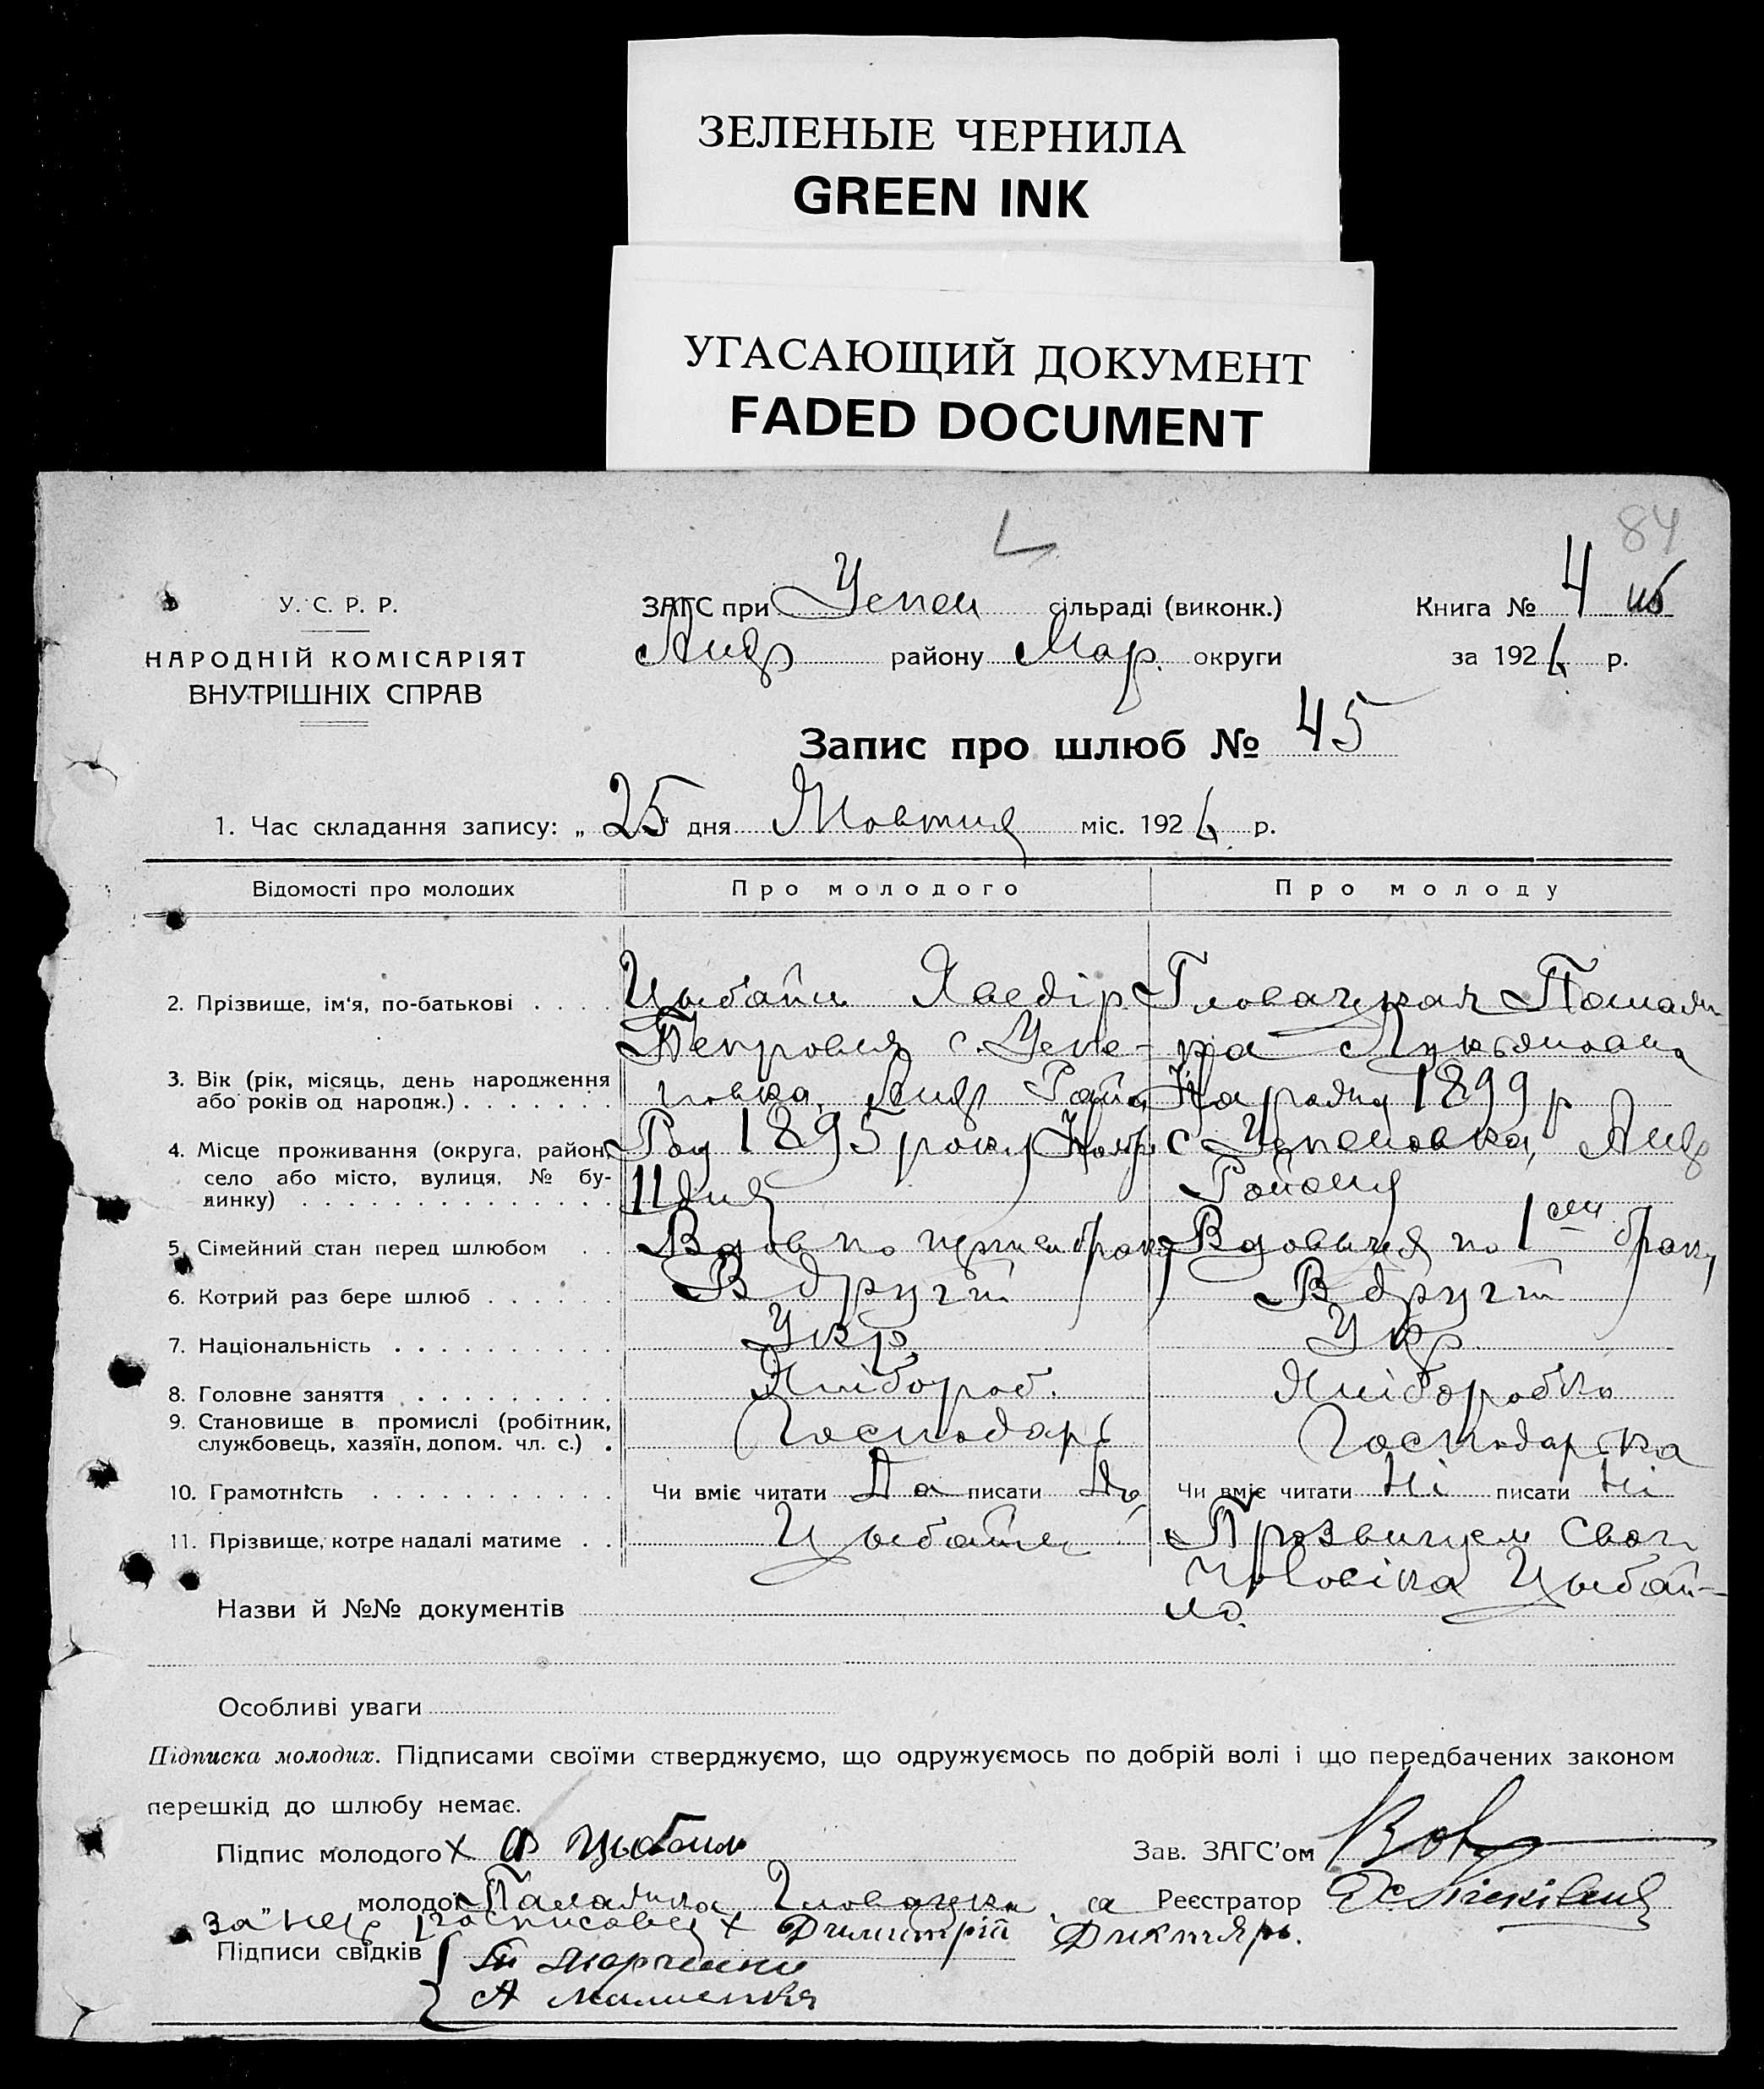 ЗЕЛЕНЫЕ ЧЕРНИЛА
GREEN INK
УГАСАЮЩИЙ ДОКУМЕНТ
FADED DOCUMENT
84
У. С. Р. Р.
НАРОДНІЙ КОМІСАРІЯТ
ВНУТРІШНІХ СПРАВ
ЗАГС при Успен сільраді (виконк.)
району Мар. округи
Книга № 4
за 1926 р.
Запис про шлюб № 45
1. Час складання запису: „ 25 " дня Жовтня міс. 1926 р.
Відомості про молодих
Про молодого
Про молоду
2. Прізвище, ім'я, по-батькові
3. Вік (рік, місяць, день народження
або років од народж.)
4. Місце проживання (округа, район,
село або місто, вулиця, № бу-
динку)
5. Сімейний стан перед шлюбом
6. Котрий раз бере шлюб
7. Національність
8. Головне заняття
9. Становище в промислі (робітник,
службовець, хазяїн, допом. чл. с.)
10. Грамотність
11. Прізвище, котре надалі матиме
Петровия с. Успе-
новка,
Род 1895 року
11 дня
Вдов по першем браку
В другий
Укр.
Хлібороб.
Господарь
Чи вміє читати Да писати Да
Цыбайло
Головацкая Палаж-
ка Лукьяновна
1899 р
с Успеновка,
Района
Вдовиця по 1ом браку
В другий
Укр.
Хліборобка
Господарька
Чи вміє читати Ні писати Ні
Прозвищем свого
чоловіка Цыбай-
ло.
Назви й №№ документів
Особливі уваги
Підписка молодих. Підписами своїми стверджуємо, що одружуємось по добрій волі і що передбачених законом
перешкід до шлюбу немає.
Підпис молодого х Ф Цыбайло
Зав. ЗАГС'ом
молодої Головацка, а
Реєстратор
за неї росписовця х Димитрій Дихтярь.
Підписи свідків